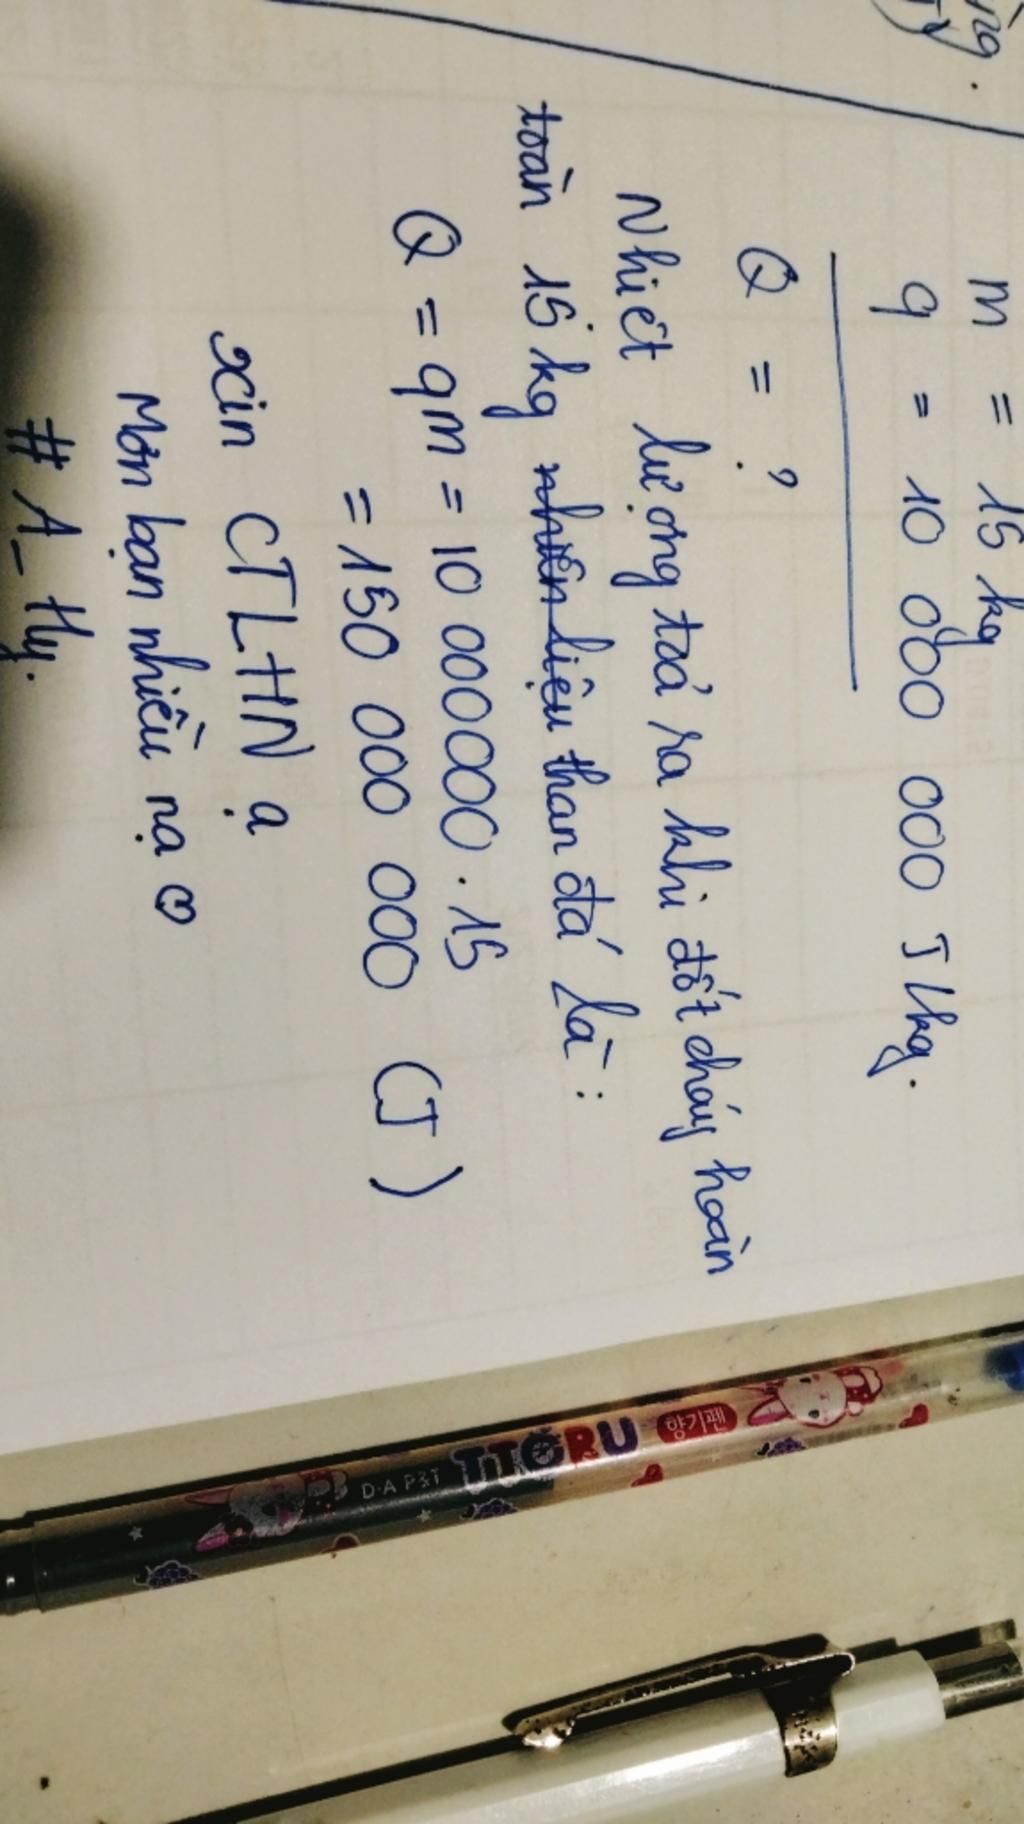 ng.
m = 15 kg
q = 10 000 000 J/kg.
Q = ?
Nhiệt lượng toả ra khi đốt cháy hoàn
toàn 15 kg nhiên liệu than đá là :
Q = qm = 10 000000 . 15
= 150 000 000 (J)
xin CTLHN ạ
Mơn bạn nhiều nạ ♡
# A_ Hy.
TTORU 향기펜
D·A P3T